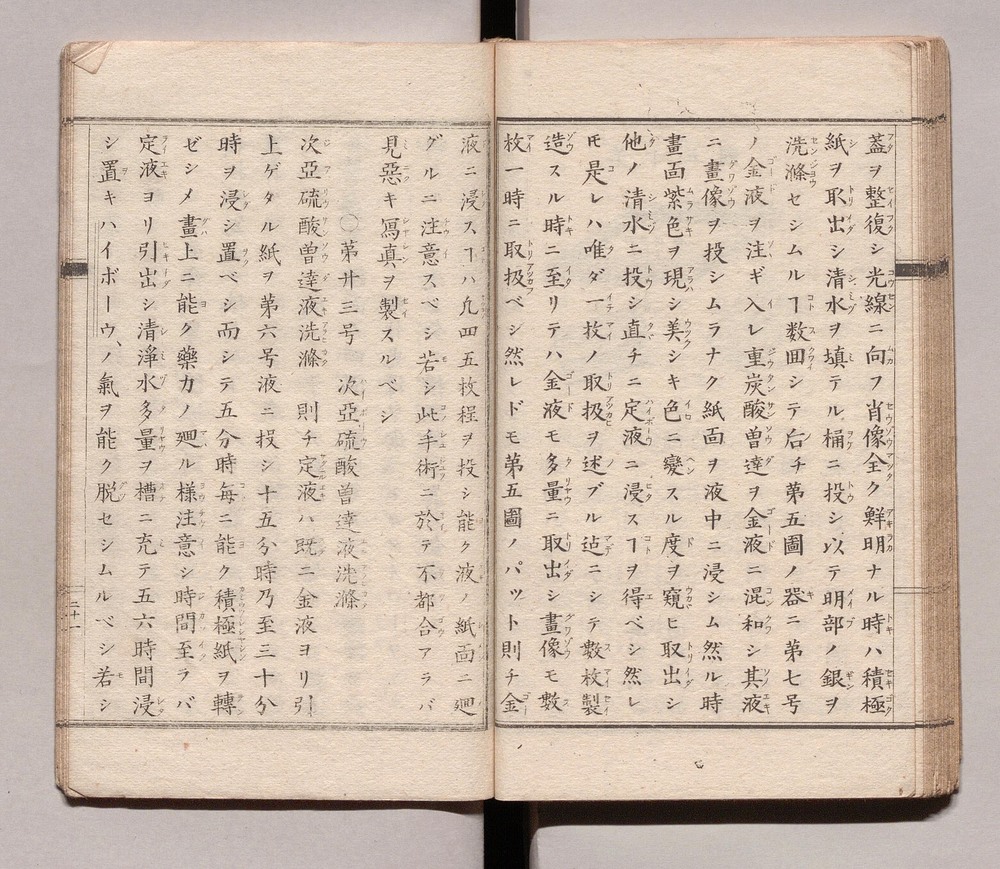 葢ヲ整復シ光線ニ向フ肖像全ク鮮明ナル時ハ積極
紙ヲ取出シ清水ヲ填テル桶ニ投シ以テ明部ノ銀ヲ
洗滌セシムルヿ数囬シテ后チ第五圖ノ器ニ第七号
ノ金液ヲ注ギ入レ重炭酸曽達ヲ金液ニ混和シ其液
ニ畫像ヲ投シムラナク紙面ヲ液中ニ浸シム然ル時
畫面紫色ヲ現シ美シキ色ニ變スル度ヲ窺ヒ取出シ
他ノ清水ニ投シ直チニ定液ニ浸スヿヲ得ベシ然レ
𪜈是レハ唯ダ一枚ノ取扱ヲ述ブル迠ニシテ數枚製
造スル時ニ至リテハ金液モ多量ニ取出シ畫像モ數
枚一時ニ取扱ベシ然レドモ第五圖ノパット則チ金
液ニ浸スヿハ凢四五枚程ヲ投シ能ク液ノ紙面ニ廻
グルニ注意スベシ若シ此手術ニ於テ不都合アラバ
見惡キ寫真ヲ製スルベシ
〇第廿三号 次亞硫酸曽達液洗滌
次亞硫酸曽達液洗滌 則チ定液ハ既ニ金液ヨリ引
上ゲタル紙ヲ第六号液ニ投シ十五分時乃至三十分
時ヲ浸シ置ベシ而シテ五分時毎ニ能ク積極紙ヲ轉
ゼシメ畫上ニ能ク藥力ノ廻ル様注意シ時間至ラバ
定液ヨリ引出シ清淨水多量ヲ槽ニ充テ五六時間浸
シ置キハイポーウ、ノ氣ヲ能ク脱セシムルベシ若シ
二十一